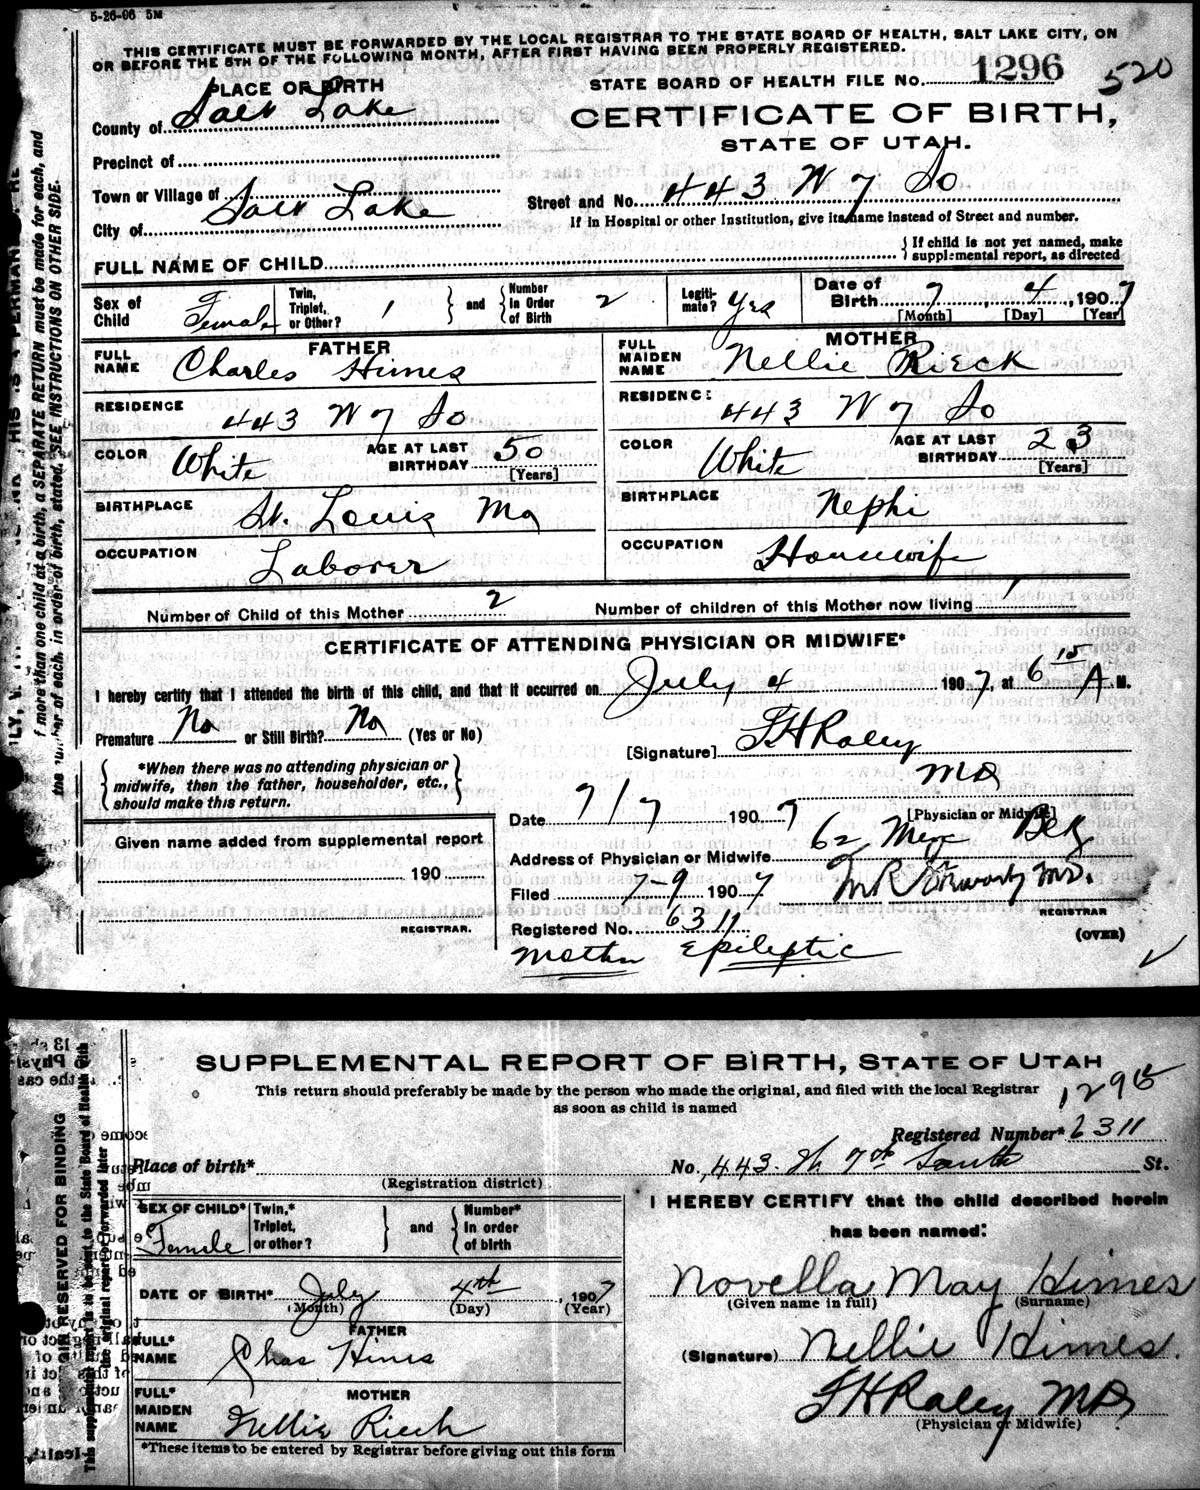 5-26-06 5M
THIS CERTIFICATE MUST BE FORWARDED BY THE LOCAL REGISTRAR TO THE STATE BOARD OF HEALTH, SALT LAKE CITY, ON
OR BEFORE THE 5TH OF THE FOLLOWING MONTH, AFTER FIRST HAVING BEEN PROPERLY REGISTERED.
STATE BOARD OF HEALTH FILE No. 1296 520
CERTIFICATE OF BIRTH,
STATE OF UTAH.
PLACE OF BIRTH
County of Salt Lake
Precinct of
Town or Village of
City of Salt Lake
Street and No. 443 W 7 So
If in Hospital or other Institution, give its name instead of Street and number.
FULL NAME OF CHILD
If child is not yet named, make
supplemental report, as directed
Sex of Child Female
Twin, Triplet, or Other? 1
and
Number In Order of Birth 2
Legitimate? Yes
Date of Birth 7, 4, 1907
[Month] [Day] [Year]
FATHER
FULL NAME Charles Himes
RESIDENCE 443 W 7 So
COLOR White AGE AT LAST BIRTHDAY 50 [Years]
BIRTHPLACE St. Louis Mo
OCCUPATION Laborer
MOTHER
FULL MAIDEN NAME Nellie Rieck
RESIDENCE 443 W 7 So
COLOR White AGE AT LAST BIRTHDAY 23 [Years]
BIRTHPLACE Nephi
OCCUPATION Housewife
Number of Child of this Mother 2 Number of children of this Mother now living 1
CERTIFICATE OF ATTENDING PHYSICIAN OR MIDWIFE*
I hereby certify that I attended the birth of this child, and that it occurred on July 4 1907, at 6 15 A. M.
Premature No or Still Birth? No (Yes or No)
[Signature] F H Raley
MD
[Physician or Midwife]
*When there was no attending physician or
midwife, then the father, householder, etc.,
should make this return.
Date 7/7 1907
Given name added from supplemental report
190
REGISTRAR.
Address of Physician or Midwife 62
Filed 7-9 1907
M.D.
REGISTRAR
Registered No. 6311
(OVER)
Mother Epileptic
f more than one child at a birth, a SEPARATE RETURN must be made for each, and
the number of each, in order of birth, stated. SEE INSTRUCTIONS ON OTHER SIDE.
SUPPLEMENTAL REPORT OF BIRTH, STATE OF UTAH
This return should preferably be made by the person who made the original, and filed with the local Registrar
as soon as child is named
Registered Number* 6311
Place of birth*
(Registration district)
No. 443. W 7th South St.
SEX OF CHILD* Female
Twin,* Triplet, or other?
and
Number* In order of birth
DATE OF BIRTH* July 4th, 1907
(Month) (Day) (Year)
FATHER
FULL* NAME Chas Himes
MOTHER
FULL* MAIDEN NAME Nellie Rieck
*These items to be entered by Registrar before giving out this form
I HEREBY CERTIFY that the child described herein
has been named:
Novella May Himes
(Given name in full) (Surname)
(Signature) Nellie Himes.
F H Raley MD
(Physician or Midwife)
RESERVED FOR BINDING
This supplemental report is to be sent to the State Board of Health with
the original report or forwarded later